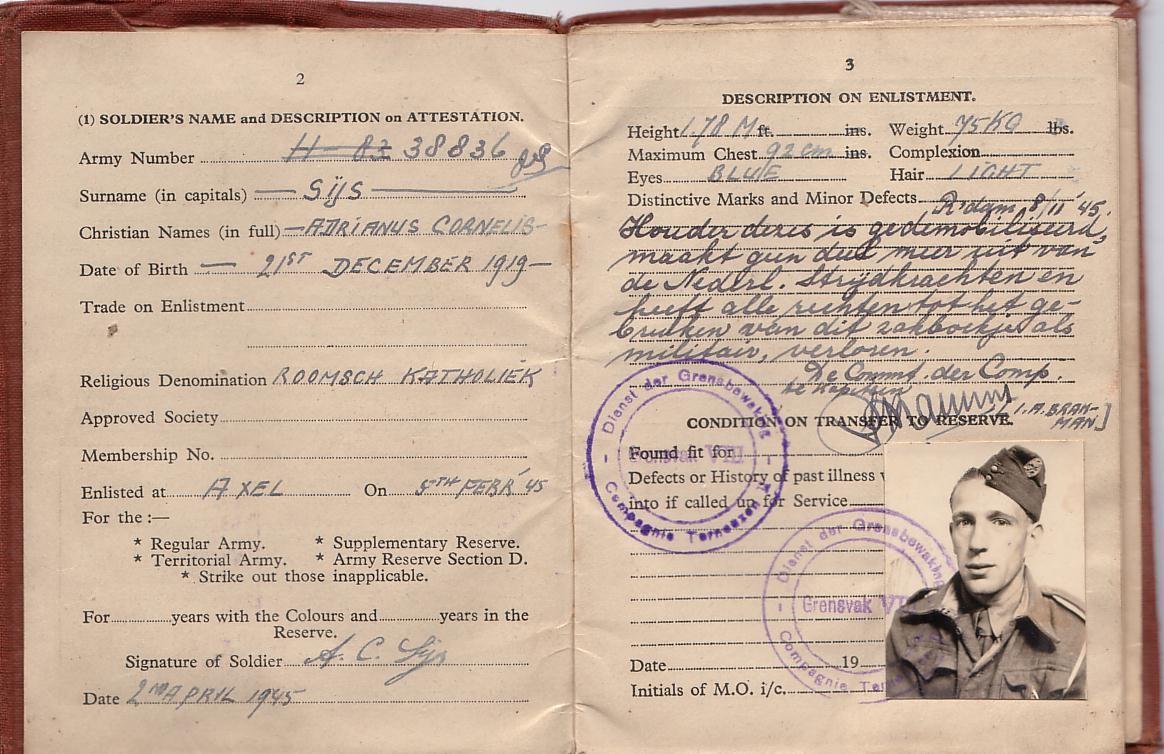 2
(1) SOLDIER'S NAME and DESCRIPTION on ATTESTATION.
Army Number 38836
Surname (in capitals) SIJS
Christian Names (in full) ADRIANUS CORNELIS
Date of Birth 21ST DECEMBER 1919
Trade on Enlistment
Religious Denomination ROOMSCH KATHOLIEK
Approved Society
Membership No.
Enlisted at AXEL On 5TH FEBR '45
For the :—
* Regular Army. * Supplementary Reserve.
* Territorial Army. * Army Reserve Section D.
* Strike out those inapplicable.
For years with the Colours and years in the
Reserve.
Signature of Soldier A. C. Sijs
Date 2ND APRIL 1945
3
DESCRIPTION ON ENLISTMENT.
Height 1.78 M ft. ins. Weight 75 KG lbs.
Maximum Chest 92 cm ins. Complexion
Eyes BLUE Hair LIGHT
Distinctive Marks and Minor Defects R'dam, 8/11 '45.
Houder dezes is gedemobiliseerd,
maakt geen deel meer uit van
de Nederl. Strijdkrachten en
heeft alle rechten tot het ge-
bruiken van dit zakboekje als
militair, verloren.
De Commt. der Comp.
de Kapitein
I.A. BRAK-
MAN]
CONDITION ON TRANSFER TO RESERVE.
Found fit for
Defects or History of past illness
into if called up for Service
Date 19
Initials of M.O. i/c.
Dienst der Grensbewaking
Grensvak VIII
Compagnie Terneuzen
Dienst der Grensbewaking
Grensvak VIII
Compagnie Ter